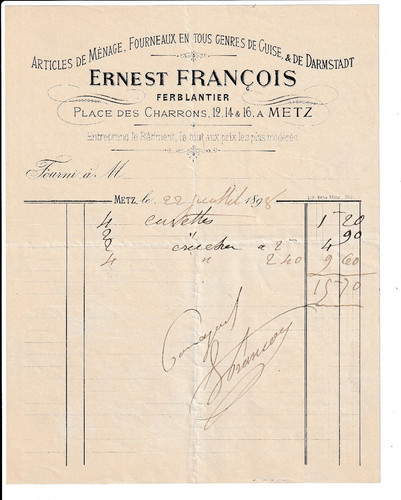 ARTICLES DE MÉNAGE, FOURNEAUX EN TOUS GENRES DE GUISE, & DE DARMSTADT
ERNEST FRANÇOIS
FERBLANTIER
PLACE DES CHARRONS, 12, 14 & 16, A METZ
Entreprend le Bâtiment, le tout aux prix les plus modérés
Fourni à M
METZ, le 22 juillet 1898
4 cuvettes 1 20
2 90
2 cruches a 2 " 4
4 " 2 40 9 60
15 70
Pour acquit
E François